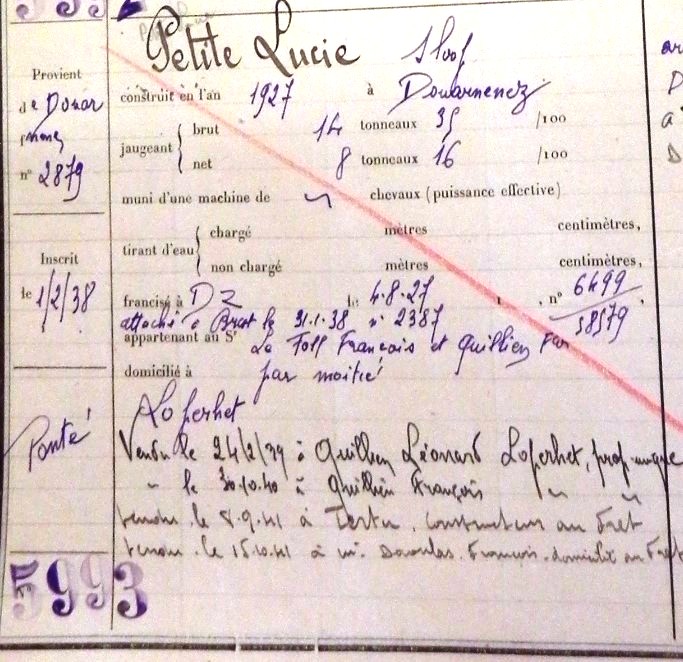 Petite Lucie Sloop
Provient
de Douar
nenez
n° 2879
construit en l'an 1927 à Douarnenez
jaugeant { brut 14 tonneaux 35 /100
net 8 tonneaux 16 /100
muni d'une machine de chevaux (puissance effective)
tirant d'eau { chargé mètres centimètres,
non chargé mètres centimètres,
Inscrit
le 1/2/38
francisé à DZ le 4.8.27, n° 6499
attaché à Brest le 31.1.38 n° 2387 38579
appartenant au St Le Foll François et Quillien Fan
domicilié à par moitié
Loperhet
Ponté
Vendu le 24/2/39 à Quillien Léonard Loperhet, prop. unique
" le 30.10.40 à Quillien François " "
vendu le 8.9.41 à Tertu, constructeur au Fret
vendu le 15.10.41 à mr Daoulas François domicilié au Fret
5993